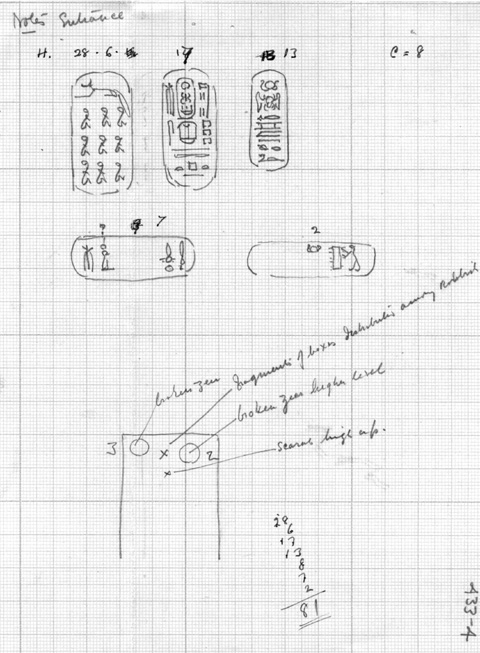 Notes Entrance
H. 28 · 6 · 17 13 C = 8
7 2
fragments of boxes distributed among rubbish
broken zeer
broken zeer higher level
3 x 2
x
scarab high up.
28
6
17
13
8
7
2
81
433-A